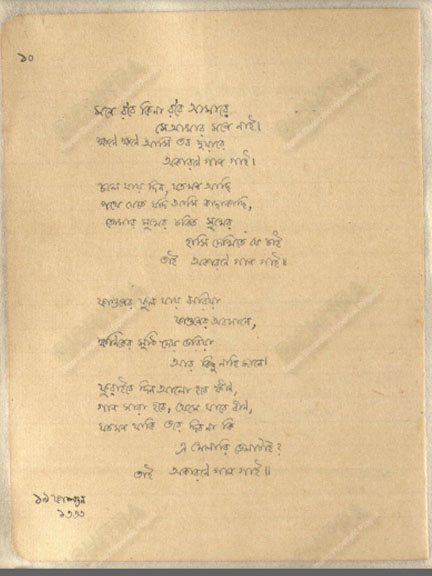 ১০
মনে র'বে কিনা র'বে আমারে
সে আমার মনে নাই।
ক্ষণে ক্ষণে আসি তব দুয়ারে
অকারণে গান গাই।
চলে যায় দিন, যতখন আছি
পথে যেতে যদি আসি কাছাকাছি,
তোমার মুখের চকিত সুখের
হাসি দেখিতে যে চাই
তাই অকারণে গান গাই॥
ফাগুনের ফুল যায় ঝরিয়া
ফাগুনের অবসানে,
ক্ষণিকের মুঠি দেয় ভরিয়া
আর কিছু নাহি জানে।
ফুরাইবে দিন আলো হবে ক্ষীণ,
গান সারা হবে, থেমে যাবে বীন,
যতখন থাকি ভরে দিবে না কি
এ খেলারি ভেলাটাই?
তাই অকারণে গান গাই॥
১৯ ফাল্গুন
১৩৩৩